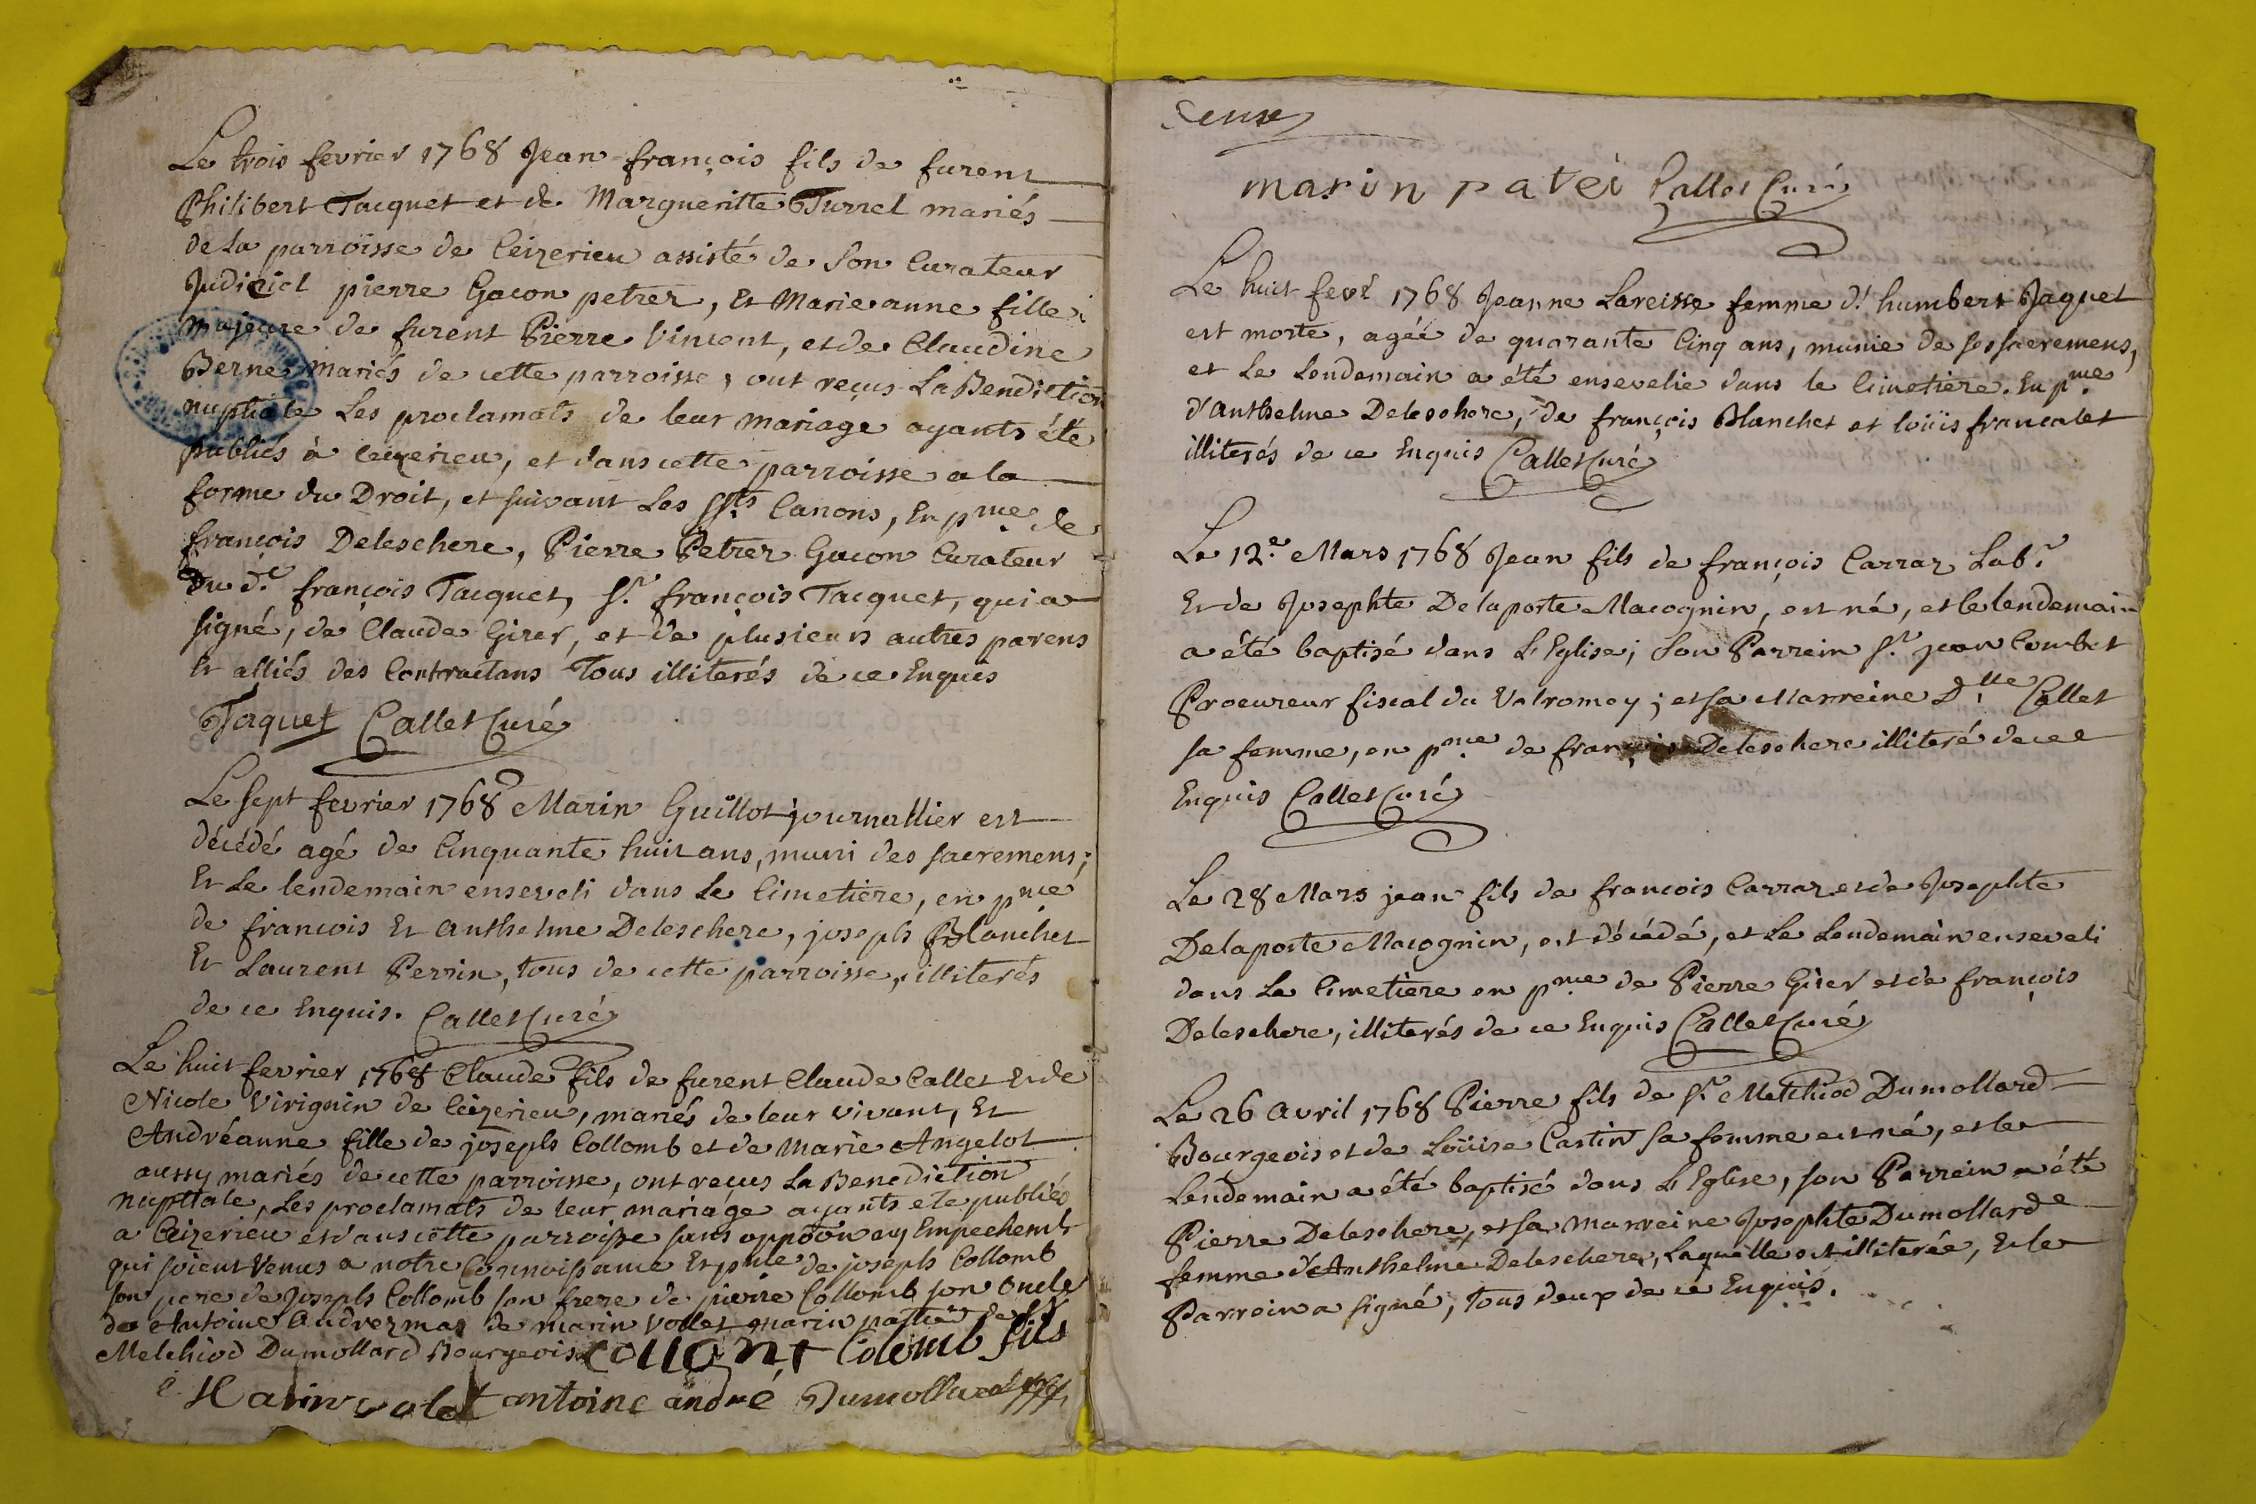 Le trois fevrier 1768 Jean-françois fils de furent
Philibert Tacquet et de Margueritte Turrel mariés
de la parroisse de Ceizerieu assisté de son Curateur
Judiciel pierre Gocon petrer, Et Marie anne fille
majeure de furent Pierre Vincent, et de Claudine
Berne mariés de cette parroisse, ont reçus La Bendiction
nuptiale Les proclamats de leur mariage ayants été
publiés à Ceizerieu, et dans cette parroisse a la
forme du Droit, et suivant Les Sts Canons, En pnce de
françois Deleschere, Pierre Petrer Gocon Curateur
Du d.t françois Tacquet, Sr. françois Tacquet, qui a
signé, de Claude Girer, et de plusieurs autres parens
Et alliés des Contractans Tous illiterés de ce Enquis
Taquet Callet Curé
Le sept fevrier 1768 Marin Guillot journallier est
décédé agé de Cinquante huit ans, muni des sacremens;
Et Le lendemain enseveli dans Le Cimetiere, en pnce
de francois Et Anthelme Deleschere, joseph Blanchet
Et Laurent Perrin, tous de cette parroisse, illiterés
de ce Enquis. Callet Curé
Le huit fevrier 1768 Claude fils de furent Claude Callet Et de
Nicole Virignin de Ceizerieu, mariés de leur vivant, Et
Andréanne fille de joseph Collomb et de Marie Angelot
aussy mariés de cette parroisse, ont reçus La Benediction
Nuptiale, Les proclamats de leur mariage ayants eté publiés
a Ceizerieu et dans cette parroisse sans oppoon ny Empechemt
qui soient Venus a notre Connoissance Et pnce de joseph Collomb
son pere de Joseph Collomb son frere de pierre Collomb son oncle
de Antoine de marin Vollet marin de Sr
Melchiod Dumollard Bourgeois Collont Colomb fils
Marin volet antoine andré Dumollard
Ceux
marin patéi Callet Curé
Le huit fevr 1768 Jeanne Lareisse femme d.' humbert Jaquet
est morte, agéé de quarante Cinq ans, munie de ses sacremens,
et Le Lendemain a été ensevelie dans le Cimetiere. En pnce
d'anthelme Deleschere, de françois Blanchet et loüis francalet
illiterés de ce Enquis Callet Curé
Le 12.e Mars 1768 Jean fils de françois Carraz Labr.
Et de Josephte Delaporte Macognin, est né, et le lendemain
a été baptisé dans L'Eglise; Son Parrein Sr. jean Combet
Procureur fiscal du Valromey; et sa Marreine D.lle Callet
sa femme, en pnce de françois Deleschere illiteré de ce
Enquis Callet Curé
Le 28 Mars jean fils de francois Carraz et de Josephte
Delaporte Macognin, est décédé, et Le Lendemain enseveli
dans Le Cimetiere en pnce de Pierre Girer et de françois
Deleschere, illiterés de ce Enquis Callet Curé
Le 26 Avril 1768 Pierre fils de Sr. Melchiod Dumollard
Bourgeois et de Loüise Castin sa femme est né, et le
Lendemain a été baptisé dans L'Eglise, son Parrein a été
Pierre Deleschere, et sa marreine Josephte Dumollard
femme d'Anthelme Deleschere, Laquelle est illiterée, Et le
Parrein a signé, tous deux de ce Enquis.